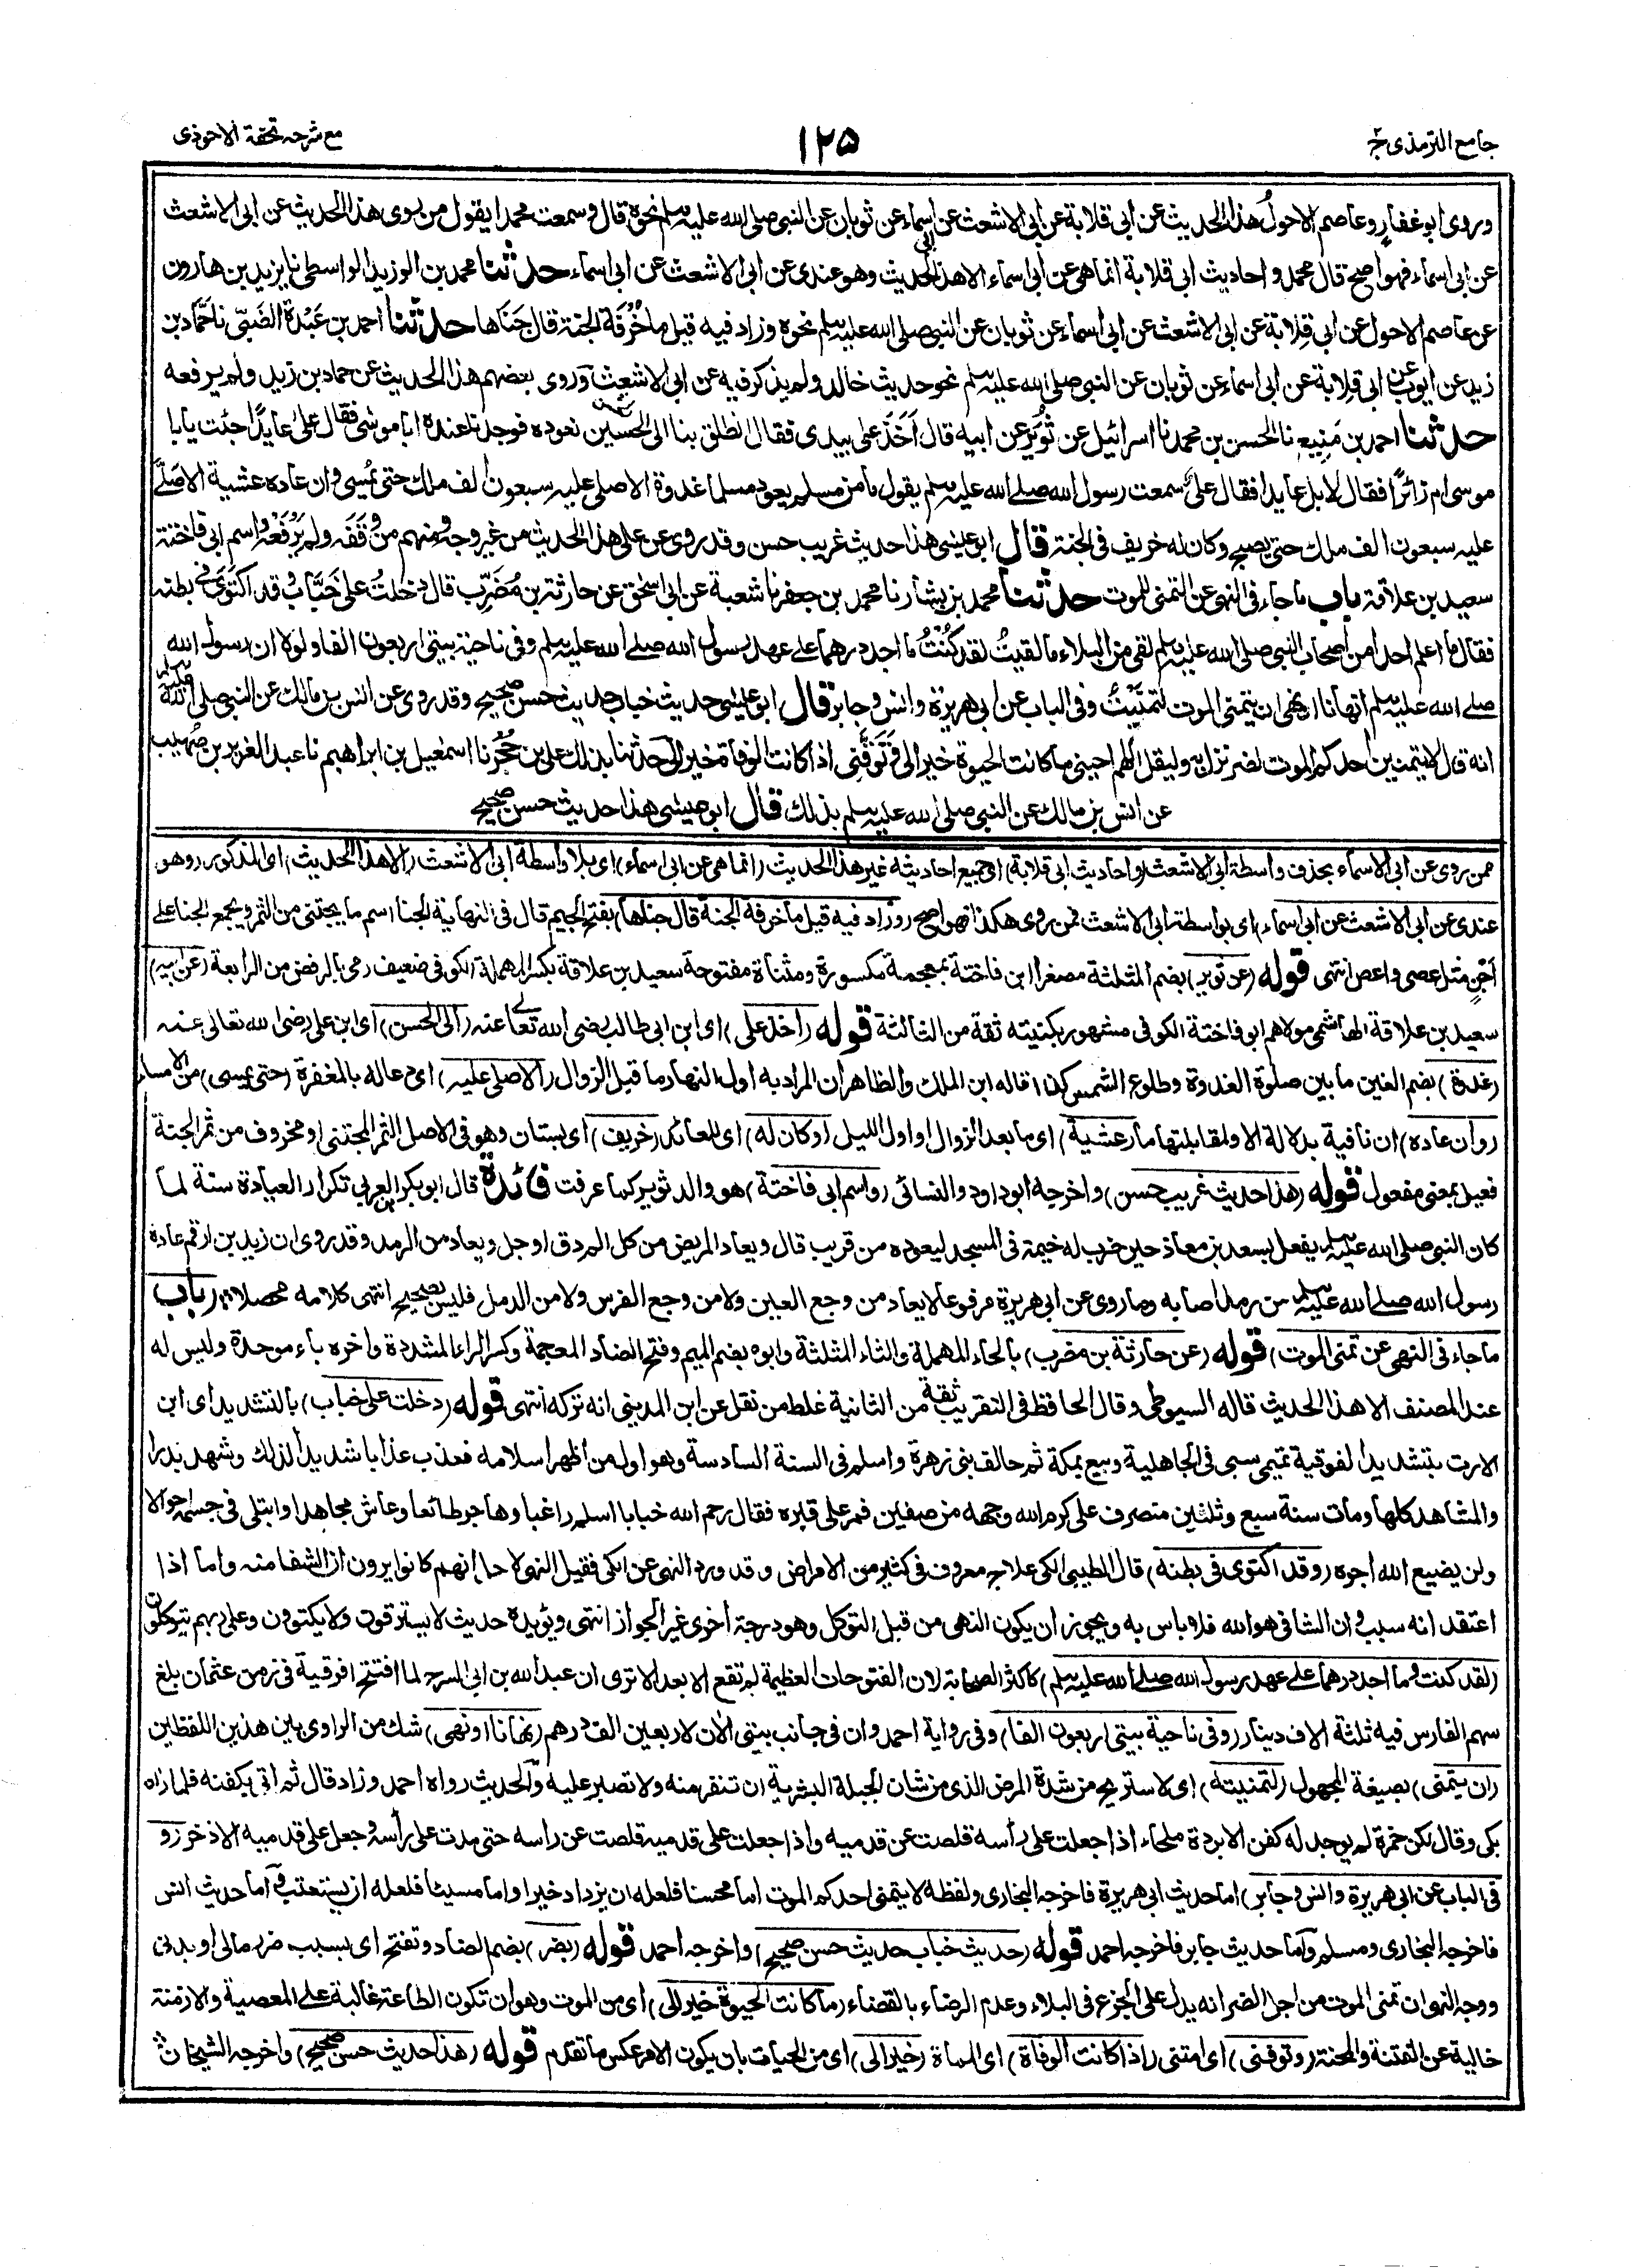 جامع الترمذی ج۲
۱۲۵
مع شرحہ تحفة الاحوذی
وروی ابو غفار وعاصم الاحولُ هذا الحدیث عن ابی قلابة عن ابی الاشعث عن ابی اسماء عن ثوبان عن النبی صلی الله علیہ وسلم نحوه قال وسمعت محمدا یقول من روی هذا الحدیث عن ابی الاشعث
عن ابی اسماء فهوا صح قال محمد و احادیث ابی قلابة انما هی عن ابی اسماء الا هذا الحدیث وهو عندی عن ابی الاشعث عن ابی اسماء حدثنا محمد بن الوزیر الواسطی نا یزید بن هارون
عن عاصم الاحول عن ابی قِلابة عن ابی الاشعث عن ابی اسماء عن ثوبان عن النبی صلی الله علیہ وسلم نحوه وزاد فیه قیل ما خُرْفَة الجنة قال جَنَاها حدثنا احمد بن عَبْدة الضَبّی نا حَمّاد بن
زید عن ایوب عن ابی قِلابة عن ابی اسماء عن ثوبان عن النبی صلی الله علیہ وسلم نحو حدیث خالد ولم یذکر فیه عن ابی الاشعث وروی بعضهم هذا الحدیث عن حماد بن زید ولم یرفعه
حدثنا احمد بن مَنِیع نا الحسن بن محمد نا اسرائیل عن ثُوَیْر عن ابیه قال اَخَذَ علی بیدی فقال انطلق بنا الی الحسین نعوده فوجدنا عنده ابا موسٰی فقال علی عایدًا جئت یا با
موسی ام زائرًا فقال لا بل عایدا فقال علیٌ سمعت رسول الله صلے الله علیہ وسلم یقول ما من مسلم یعود مسلما غدوة الا صلی علیه سبعون الف ملك حتی یُمسی وان عاده عشیة الا صَلّٰے
علیه سبعون الف ملك حتی یصبح وکان له خریف فی الجنة قال ابو عیسٰی هذا حدیث غریب حسن وقد روی عن علی هذا الحدیث من غیر وجه ومنهم من وَقَفَه ولم یَرْفَعْه واسم ابی فاختة
سعید بن علاقة باب ما جاء فی النهی عن التمنی للموت حدثنا محمد بن بشار نا محمد بن جعفر نا شعبة عن ابی اسحٰق عن حارثة بن مُضَرِّب قال دخلتُ علی خَبَّاب وقد اکتَوٰی فی بطنه
فقال ما اعلم احدا من اصحاب النبی صلی الله علیہ وسلم لقی من البلاء ما لقیتُ لقد کُنْتُ ما اجد درهما علے عهد رسول الله صلے الله علیہ وسلم وفی ناحیة بیتی اربعون الفا ولولا ان رسول الله
صلے الله علیہ وسلم نهانا او نهی ان یتمنی الموت لتمنّیْتُ وفی الباب عن ابی هریرة وانس وجابر قال ابو عیسٰی حدیث خباب حدیث حسن صحیح وقد روی عن انس بن مالك عن النبی صلی الله علیہ وسلم
انه قال لا یتمنین احدکم الموت لضر نزل به ولیقل اللهم احینی ما کانت الحیوة خیرا لی وَتَوَفَّنِی اذا کانت الوفاة خیرا لی حدثنا بذلك علی بن حُجْر نا اسمعیل بن ابراهیم نا عبد العزیز بن صُهَیب
عن انس بن مالك عن النبی صلی الله علیہ وسلم بذلك قال ابو عیسٰی هذا حدیث حسن صحیح
ممن روی عن ابی الاسماء بحذف واسطة ابی الاشعث (واحادیث ابی قلابة) ای جمیع احادیثه غیر هذا الحدیث (انما هی عن ابی اسماء) ای بلا واسطة ابی الاشعث (الا هذا الحدیث) ای المذکور (وهو
عندی عن ابی الاشعث عن ابی اسماء) ای بواسطة ابی الاشعث فمن روی هکذا فهو اصح (وزاد فیه قیل ما خرفة الجنة قال جناها) بفتح الجیم قال فی النهایة الجنا اسم ما یجتنی من الثمر ویجمع الجنا علی
اَجْنٍ مثل عصی واعص انتهی قوله (عن ثویر) بضم المثلثة مصغرا ابن فاختة بمعجمة مکسورة ومثناة مفتوحة سعید بن علاقة بکسر المهملة الکوفی ضعیف رمی بالرفض من الرابعة (عن ابیه)
سعید بن علاقة الهاشمی مولاهم ابو فاختة الکوفی مشهور بکنیته ثقة من الثالثة قوله (اخذ علی) ای ابن ابی طالب رضی الله تعالٰی عنه (الی الحسن) ای ابن علی رضی الله تعالی عنه
(غدوة) بضم الغین ما بین صلوة الغدوة وطلوع الشمس کذا قاله ابن الملك والظاهر ان المراد به اول النهار ما قبل الزوال (الا صلی علیه) ای دعا له بالمغفرة (حتی یمسی) من الامساء
(وان عاده) ان نافیة بدلالة الا ولمقابلتها ما (عشیة) ای ما بعد الزوال او اول اللیل (وکان له) ای للعائد (خریف) ای بستان وهو فی الاصل الثمر المجتنی او مخروف من ثمر الجنة
فعیل بمعنی مفعول قوله (هذا حدیث غریب حسن) واخرجه ابو داود والنسائی (واسم ابی فاختة) هو والد ثویر کما عرفت فائدة قال ابو بکر بن العربی تکرار العیادة سنة لما
کان النبی صلی الله علیہ وسلم یفعل بسعد بن معاذ حین ضرب له خیمة فی المسجد لیعوده من قریب قال ویعاد المریض من کل المرض دق او جل ویعاد من الرمد وقد روی ان زید بن ارقم عاده
رسول الله صلے الله علیہ وسلم من رمد اصابه وما روی عن ابی هریرة مرفوعا لا یعاد من وجع العین ولا من وجع الضرس ولا من الدمل فلیس بصحیح انتهی کلامه محصلا (باب
ما جاء فی النهی عن تمنی الموت) قوله (عن حارثة بن مضرب) بالحاء المهملة والثاء المثلثة وابوه بضم المیم وفتح الضاد المعجمة وکسر الراء المشددة واخره باء موحدة ولیس له
عند المصنف الا هذا الحدیث قاله السیوطی وقال الحافظ فی التقریب ثقة من الثانیة غلط من نقل عن ابن المدینی انه ترکه انتهی قوله (دخلت علی خباب) بالتشدید ای ابن
الارت بتشدید الفوقیة تمیمی سبی فی الجاهلیة وبیع بمکة ثم حالف بنی زهرة واسلم فی السنة السادسة وهو اول من اظهر اسلامه فعذب عذابا شدیدا لذلك وشهد بدرا
والمشاهد کلها ومات سنة سبع وثلثین منصرف علی کرم الله وجهه من صفین فمر علی قبره فقال رحم الله خبابا اسلم راغبا وهاجر طائعا وعاش مجاهدا وابتلی فی جسمه احوالا
ولن یضیع الله اجره (وقد اکتوی فی بطنه) قال الطیبی الکی علاج معروف فی کثیر من الامراض وقد ورد النهی عن الکی فقیل النهی لاجل انهم کانوا یرون ان الشفا منه واما اذا
اعتقد انه سبب وان الشافی هو الله فلا باس به ویجوز ان یکون النهی من قبل التوکل وهو درجة اخری غیر الجواز انتهی ویؤیده حدیث لا یسترقون ولا یکتوون وعلی ربهم یتوکلون
(لقد کنت وما اجد درهما علی عهد رسول الله صلے الله علیہ وسلم) کاکثر الصحابة لان الفتوحات العظیمة لم تقع الا بعد الا تری ان عبد الله بن ابی السرح لما افتتح افریقیة فی زمن عثمان بلغ
سهم الفارس فیه ثلثة الاف دینار (وفی ناحیة بیتی اربعون الفا) وفی روایة احمد وان فی جانب بیتی الآن لاربعین الف درهم (نهانا او نهی) شك من الراوی بین هذین اللفظین
(ان یتمنی) بصیغة المجهول (لتمنیته) ای لاستریح من شدة المرض الذی من شان الجبلة البشریة ان تنفر منه ولا تصبر علیه والحدیث رواه احمد وزاد قال ثم اتی بکفنه فلما راه
بکی وقال لکن حمزة لم یوجد له کفن الا بردة ملحاء اذا جعلت علی رأسه قلصت عن قدمیه واذا جعلت علی قدمیه قلصت عن راسه حتی مدت علی رأسه وجعل علی قدمیه الاذخر (و
فی الباب عن ابی هریرة وانس وجابر) اما حدیث ابی هریرة فاخرجه البخاری ولفظه لا یتمنی احدکم الموت اما محسنا فلعله ان یزداد خیرا واما مسیئا فلعله ان یستعتب واما حدیث انس
فاخرجه البخاری ومسلم واما حدیث جابر فاخرجه احمد قوله (حدیث خباب حدیث حسن صحیح) واخرجه احمد قوله (بضر) بضم الضاد وتفتح ای بسبب ضر مالی او بدنی
ووجه النهی ان تمنی الموت من اجل الضر انه یدل علی الجزع فی البلاء وعدم الرضاء بالقضاء (ما کانت الحیوة خیرا لی) ای من الموت وهو ان تکون الطاعة غالبة علی المعصیة والازمنة
خالیة عن الفتنة والمحنة (وتوفنی) ای امتنی (اذا کانت الوفاة) ای الممات (خیرا لی) ای من الحیات بان یکون الامر عکس ما تقدم قوله (هذا حدیث حسن صحیح) واخرجه الشیخان